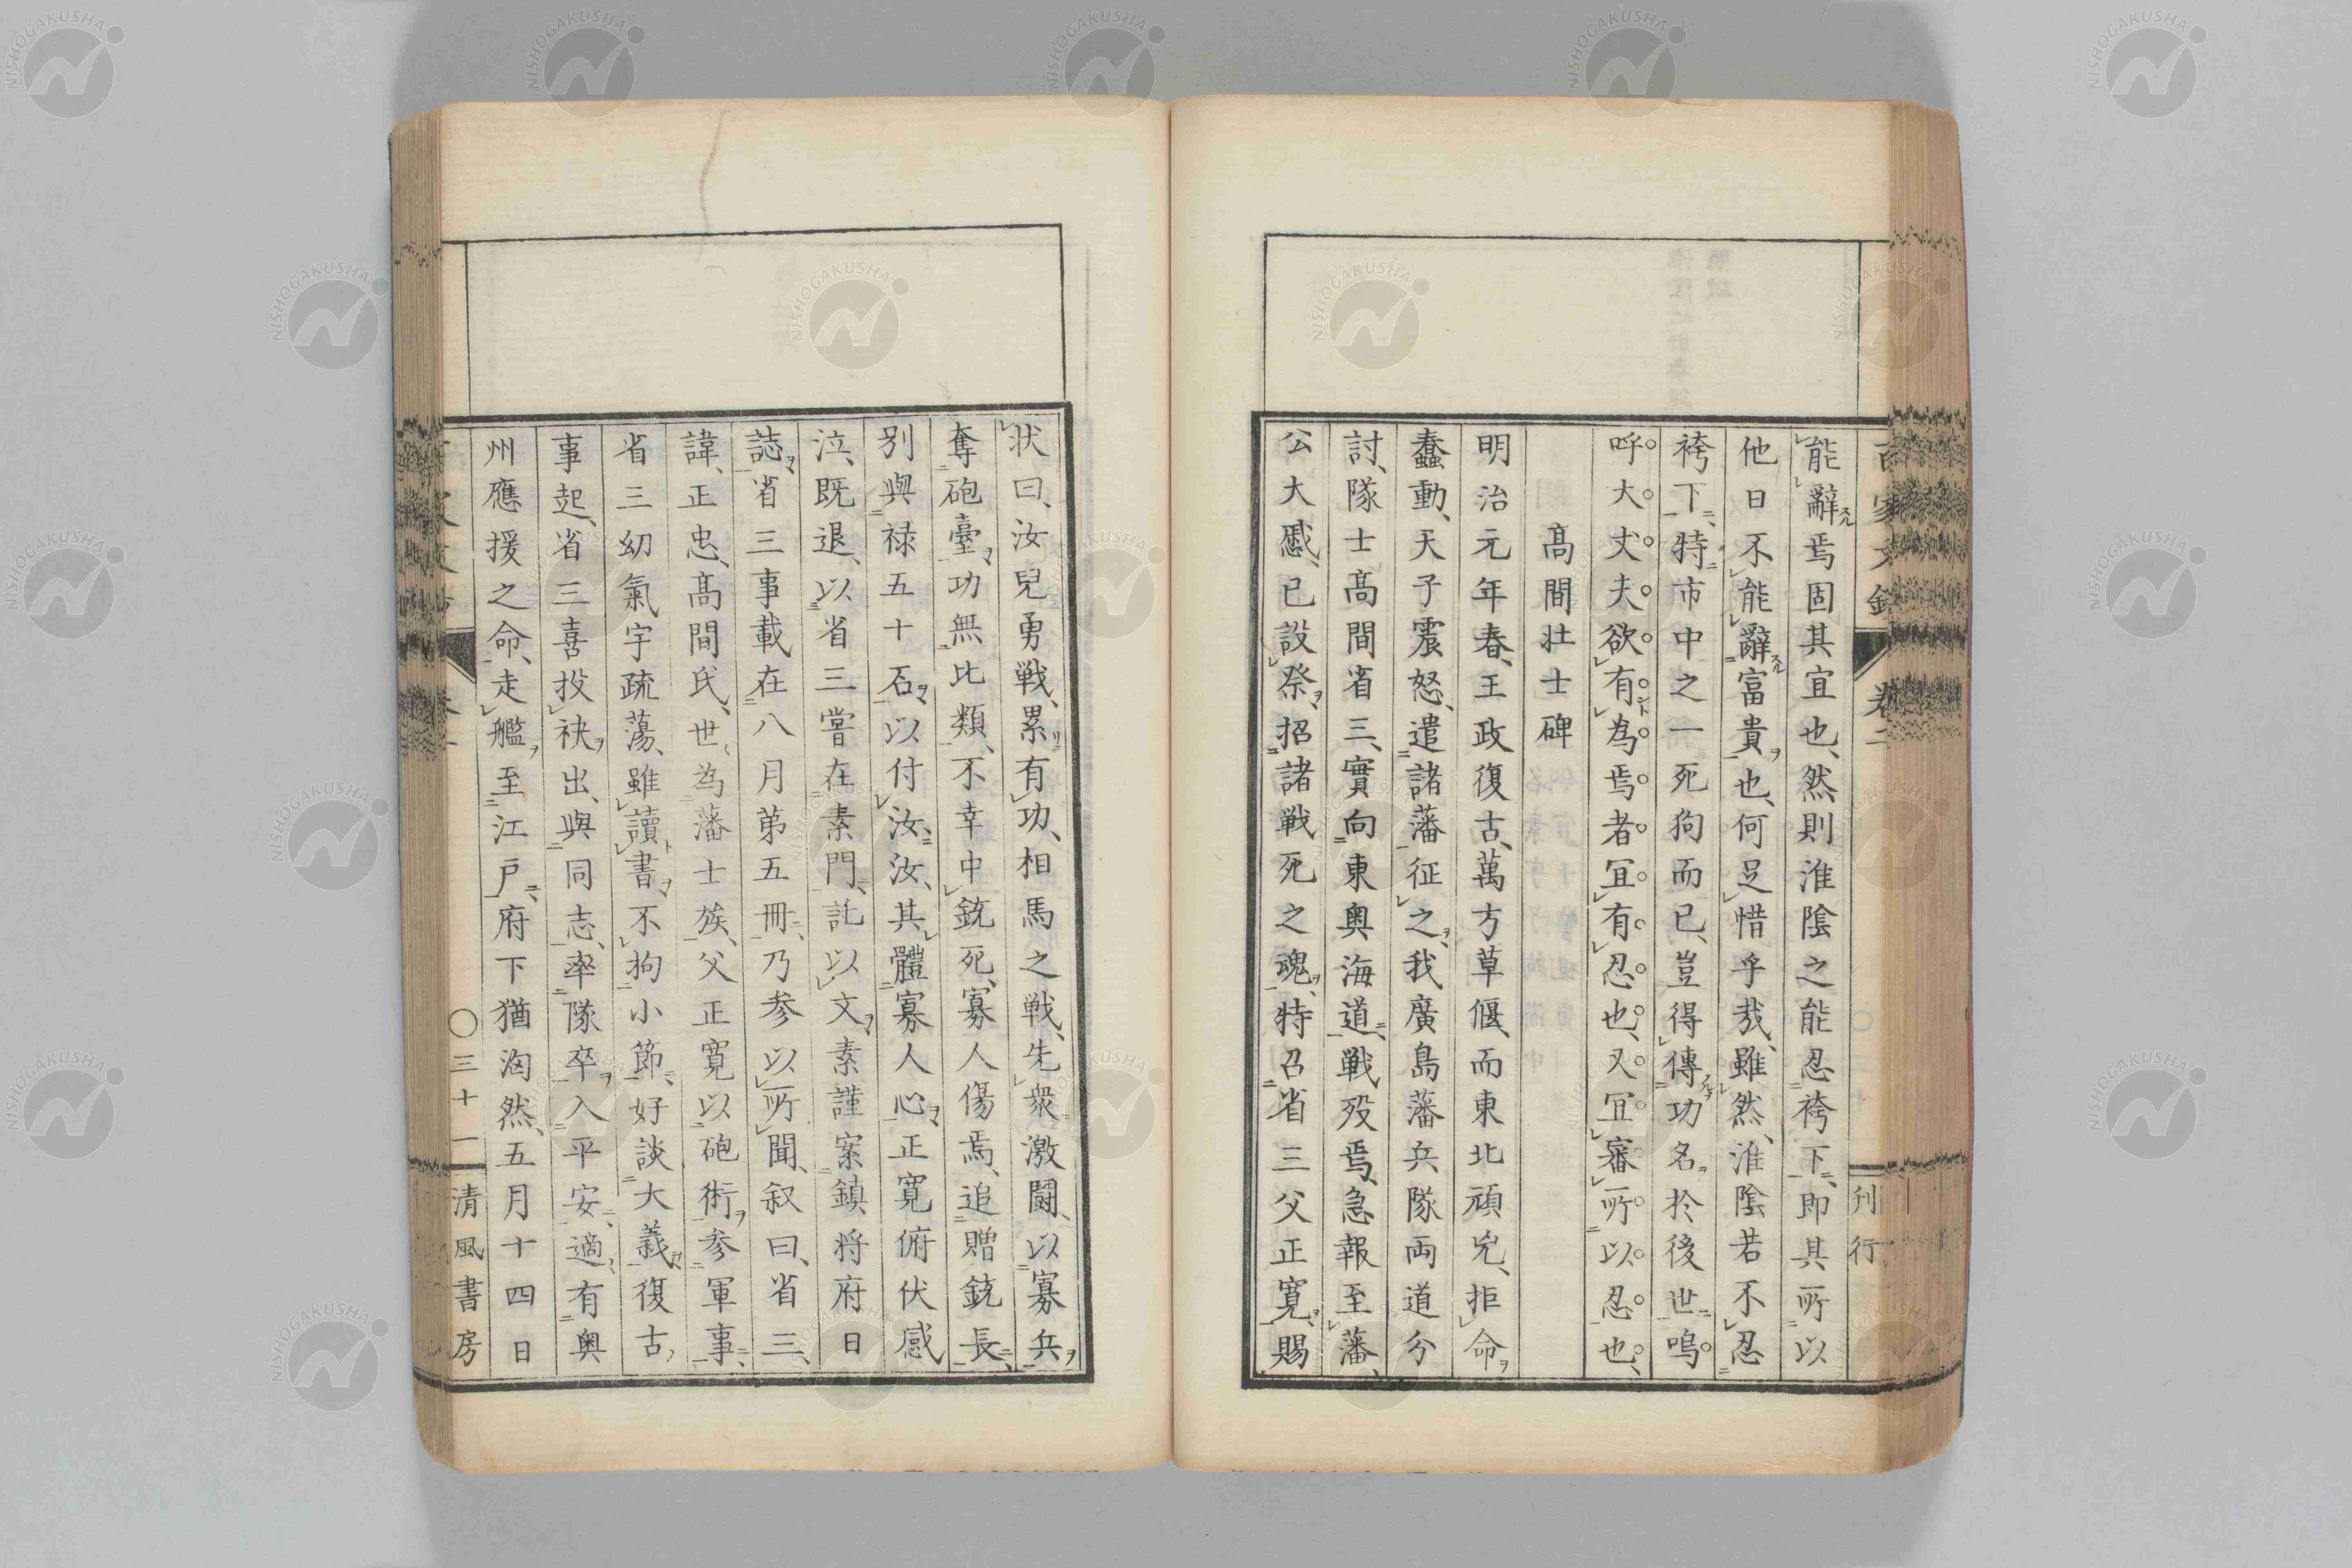 能辭スル焉固其宜也、然則淮陰之能忍袴下、即其所以
他日不能辭スル富貴ヲ也、何足惜乎哉、雖然、淮陰若不忍
袴下、特市中之一死狗而已、豈得傳功名於後世、嗚
呼大丈夫欲有為焉者宜有忍也、又宜審所以忍也、
髙間壯士碑
明治元年春、王政復古、萬方草偃、而東北頑兇、拒命ヲ
蠢動、天子震怒、遣諸藩征之ヲ、我廣島藩兵隊両道分
討、隊士髙間省三、實向東奥海道、戦歿焉、急報至藩、
公大慼、已設祭ヲ、招諸戦死之魂ヲ、特召省三父正寛ヲ、賜
状曰、汝兒勇戦、累リニ有功、相馬之戦、先衆激闘、以寡兵ヲ
奪砲臺ヲ、功無比類、不幸中銃死、寡人傷焉、追贈銃長、
別與禄五十石ヲ、以付汝、汝、其體寡人心ヲ、正寛俯伏感
泣、既退、以省三嘗在素門、託以文ヲ、素謹案鎮将府日
誌ヲ、省三事載在八月第五冊、乃参以所聞、叙曰、省三、
諱、正忠、髙間氏、世〻為藩士族、父正寛以砲術ヲ参軍事、
省三幼氣宇疏蕩、雖讀書ヲ、不拘小節、好談大義、復古ノ
事起、省三喜投袂ヲ出、與同志、率隊卒ヲ入平安、適〻有奥
州應援之命、走艦ヲ至江戸、府下猶洶然、五月十四日
卷二
刊行
〇三十一
清風書房
NISHOGAKUSHA